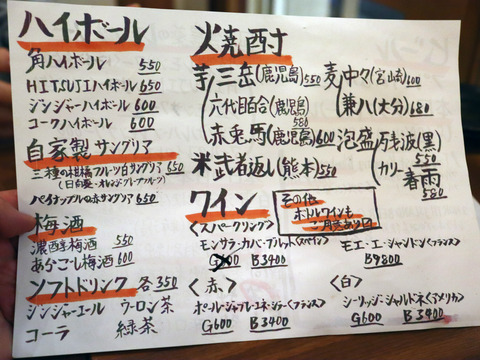 ハイボール
角ハイボール 550
HITSUJIハイボール 650
ジンジャーハイボール 600
コークハイボール 600
自家製サングリア
三種の柑橘フルーツ白サングリア 650
(日向夏・オレンジ・グレープフルーツ)
パイナップルの赤サングリア 650
梅酒
濃醇梅酒 550
あらごし梅酒 600
ソフトドリンク 各350
ジンジャーエール ウーロン茶
コーラ 緑茶
火焼酎
芋 三岳(鹿児島) 550
六代目百合(鹿児島) 580
赤兎馬(鹿児島) 600
米 武者返し(熊本) 550
麦 中々(宮崎) 600
兼八(大分) 680
泡盛 (黒) 550
カリー春雨 580
ワイン
その他
ボトルワインも
ご用意あり〼
<スパークリング>
モンサラ・カバ・ブルット<スペイン>
G600 B3400
モエ・エ・シャンドン<フランス>
B9800
<赤>
ポール・ジャブレ・エネ・シラー<フランス>
G600 B3400
<白>
シーリッジ・シャルドネ<アメリカ>
G600 B3400